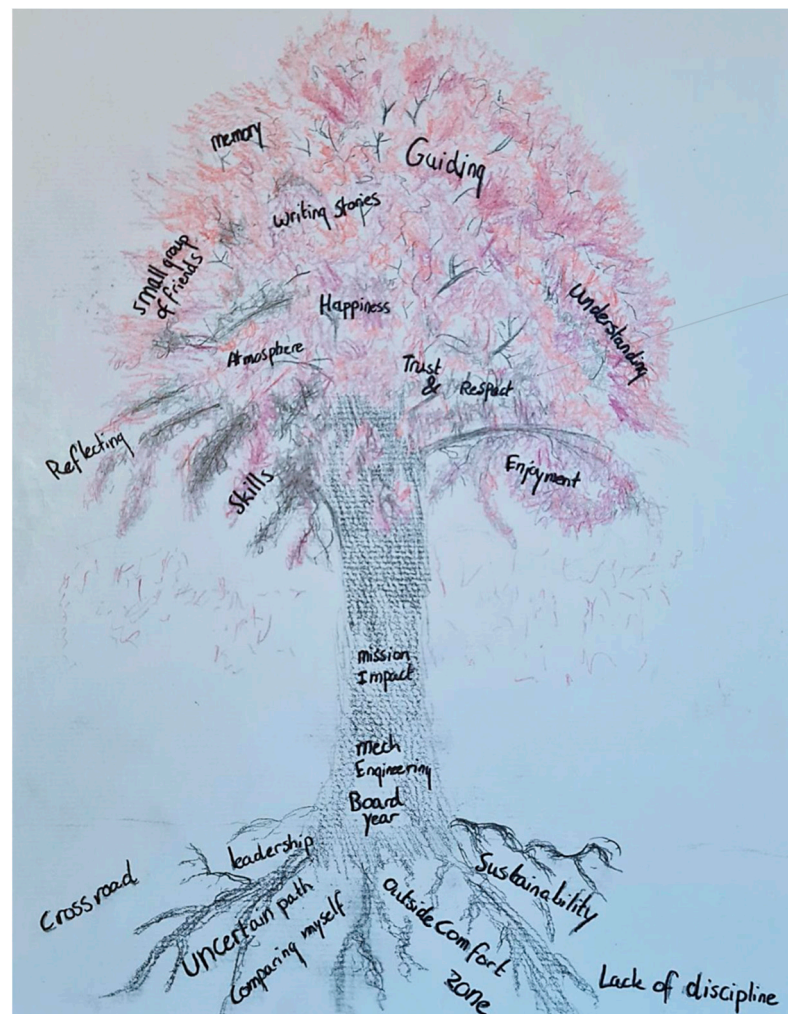 memory
Guiding
writing stories
small group
of friends
Happiness
Understanding
Atmosphere
Trust
& Respect
Reflecting
Skills
Enjoyment
mission
Impact
Mech
Engineering
Board
year
leadership
Sustainability
Crossroad
Uncertain path
Comparing myself
Outside Comfort
zone
Lack of discipline